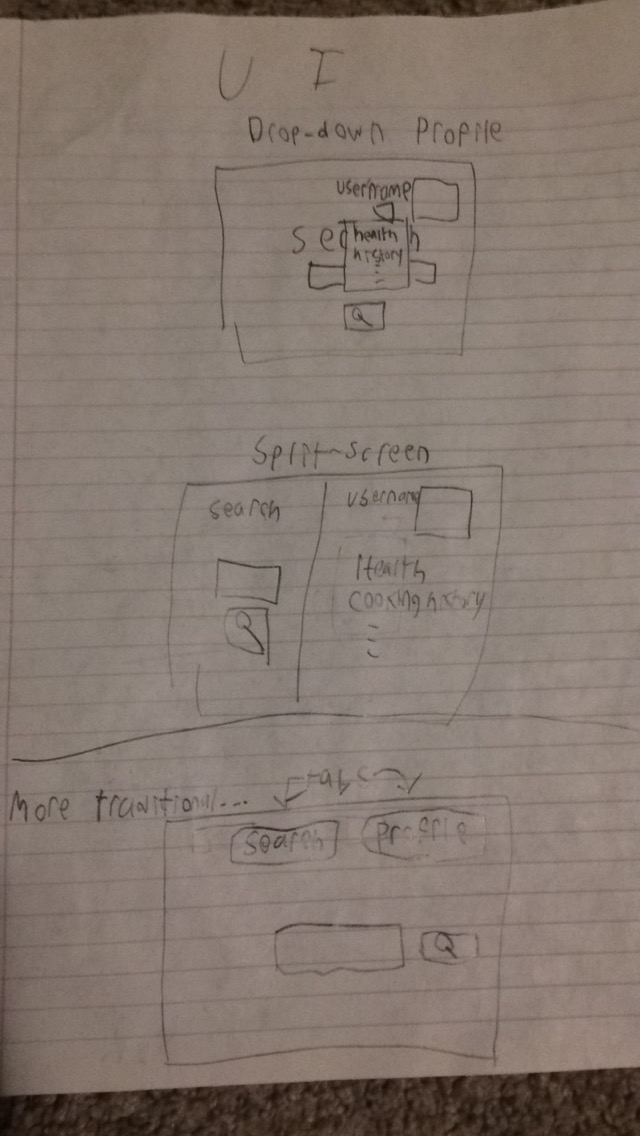 U I
Drop-down Profile
username
health
history
Split-screen
search
username
Health
cooking history
More traditional...
tabs
search
profile